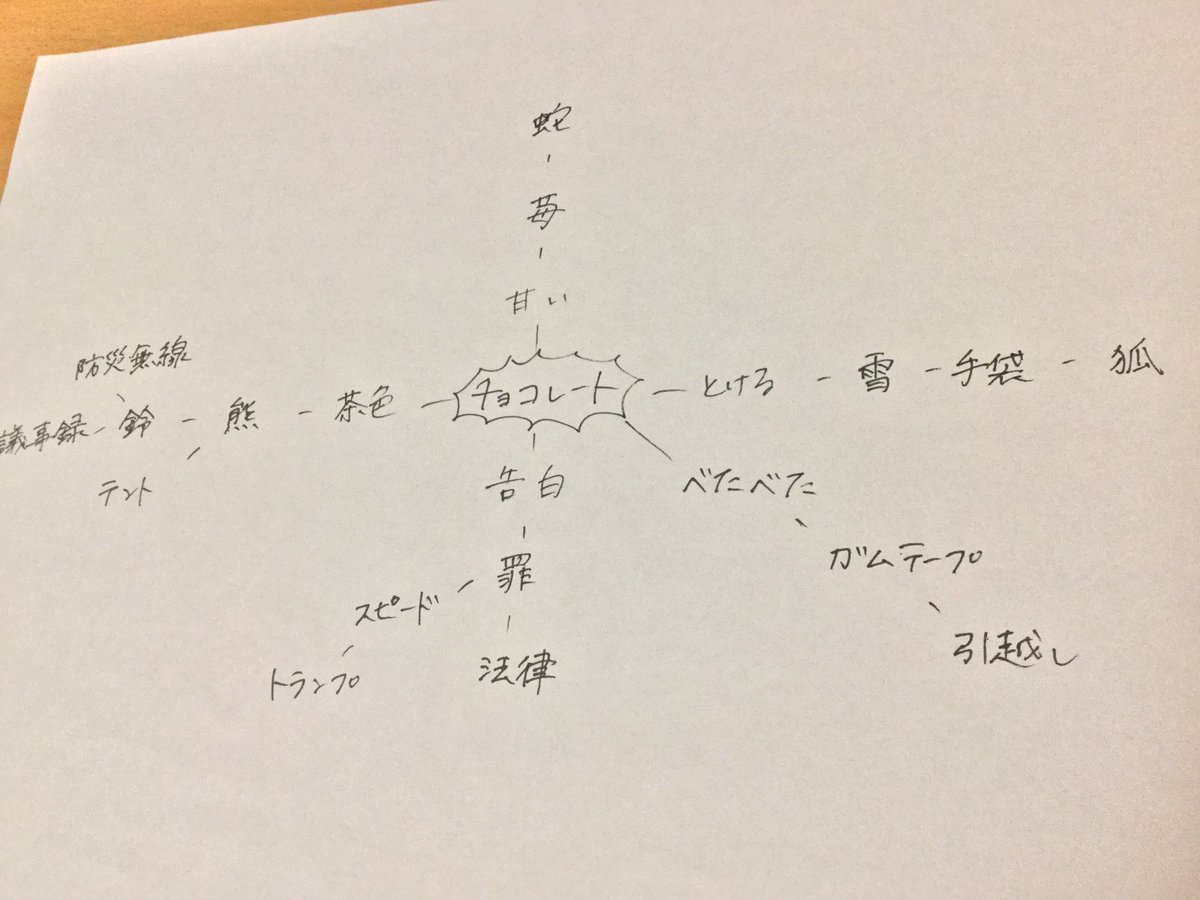 蛇
苺
甘い
防災無線
議事録 鈴 熊 茶色 チョコレート とける 雪 手袋 狐
テント
告白
べたべた
罪
ガムテープ
スピード
法律
引越し
トランプ